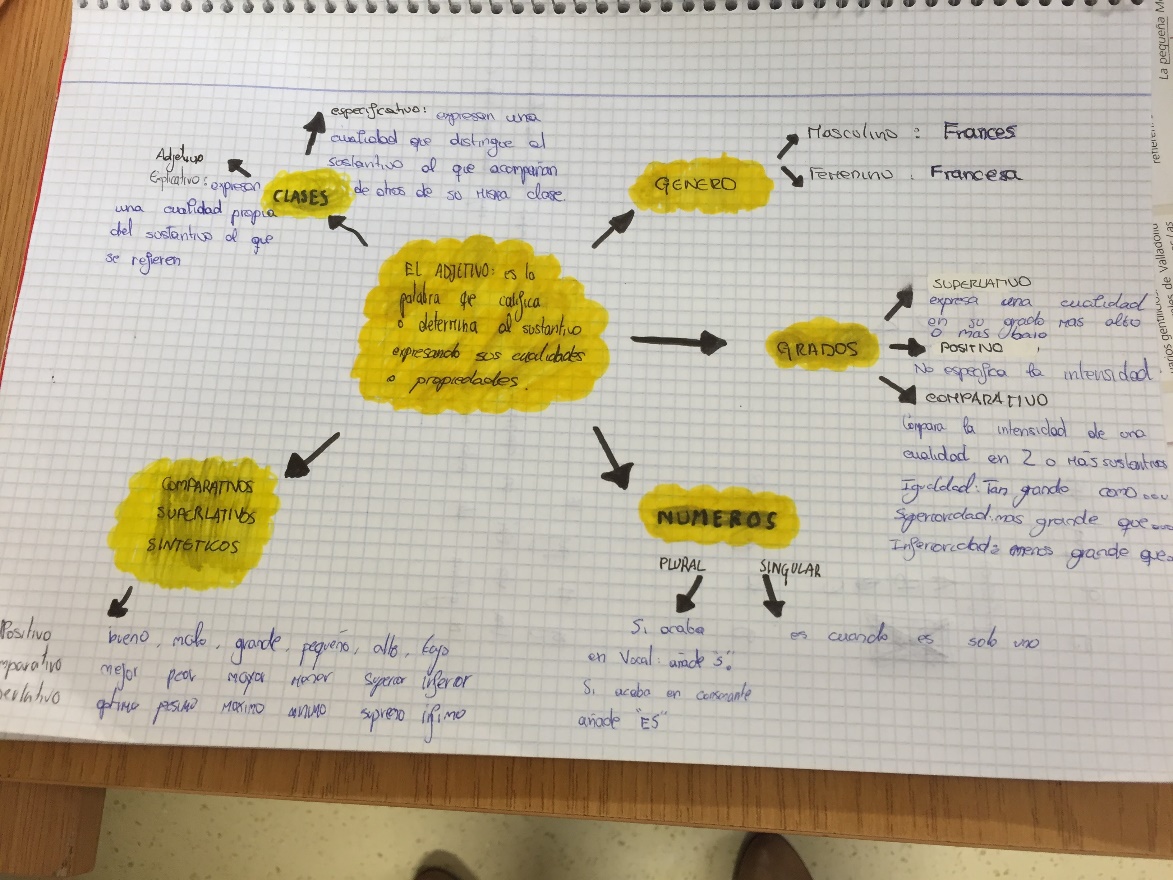 EL ADJETIVO: es la
palabra que califica
o determina al sustantivo
expresando sus cualidades
o propiedades.
CLASES
especificativo: expresan una
cualidad que distingue al
sustantivo al que acompañan
de otros de su misma clase.
Adjetivo
Explicativo: expresan
una cualidad propia
del sustantivo al que
se refieren
GENERO
Masculino : Frances
Femenino : Francesa
GRADOS
SUPERLATIVO
expresa una cualidad
en su grado mas alto
o mas bajo
POSITIVO
No especifica la intensidad
COMPARATIVO
Compara la intensidad de una
cualidad en 2 o más sustantivos
Igualdad: Tan grande como...
Superioridad: mas grande que...
Inferioridad: menos grande que..
NUMEROS
PLURAL
Si acaba
en Vocal: añade "s".
Si acaba en consonante
añade "ES"
SINGULAR
es cuando es solo uno
COMPARATIVOS
SUPERLATIVOS
SINTETICOS
Positivo bueno, malo, grande, pequeño, alto, bajo
mparativo mejor peor mayor menor superior inferior
erlativo optimo pesimo maximo minimo supremo ifimo
La pequeña M
de Valladoli